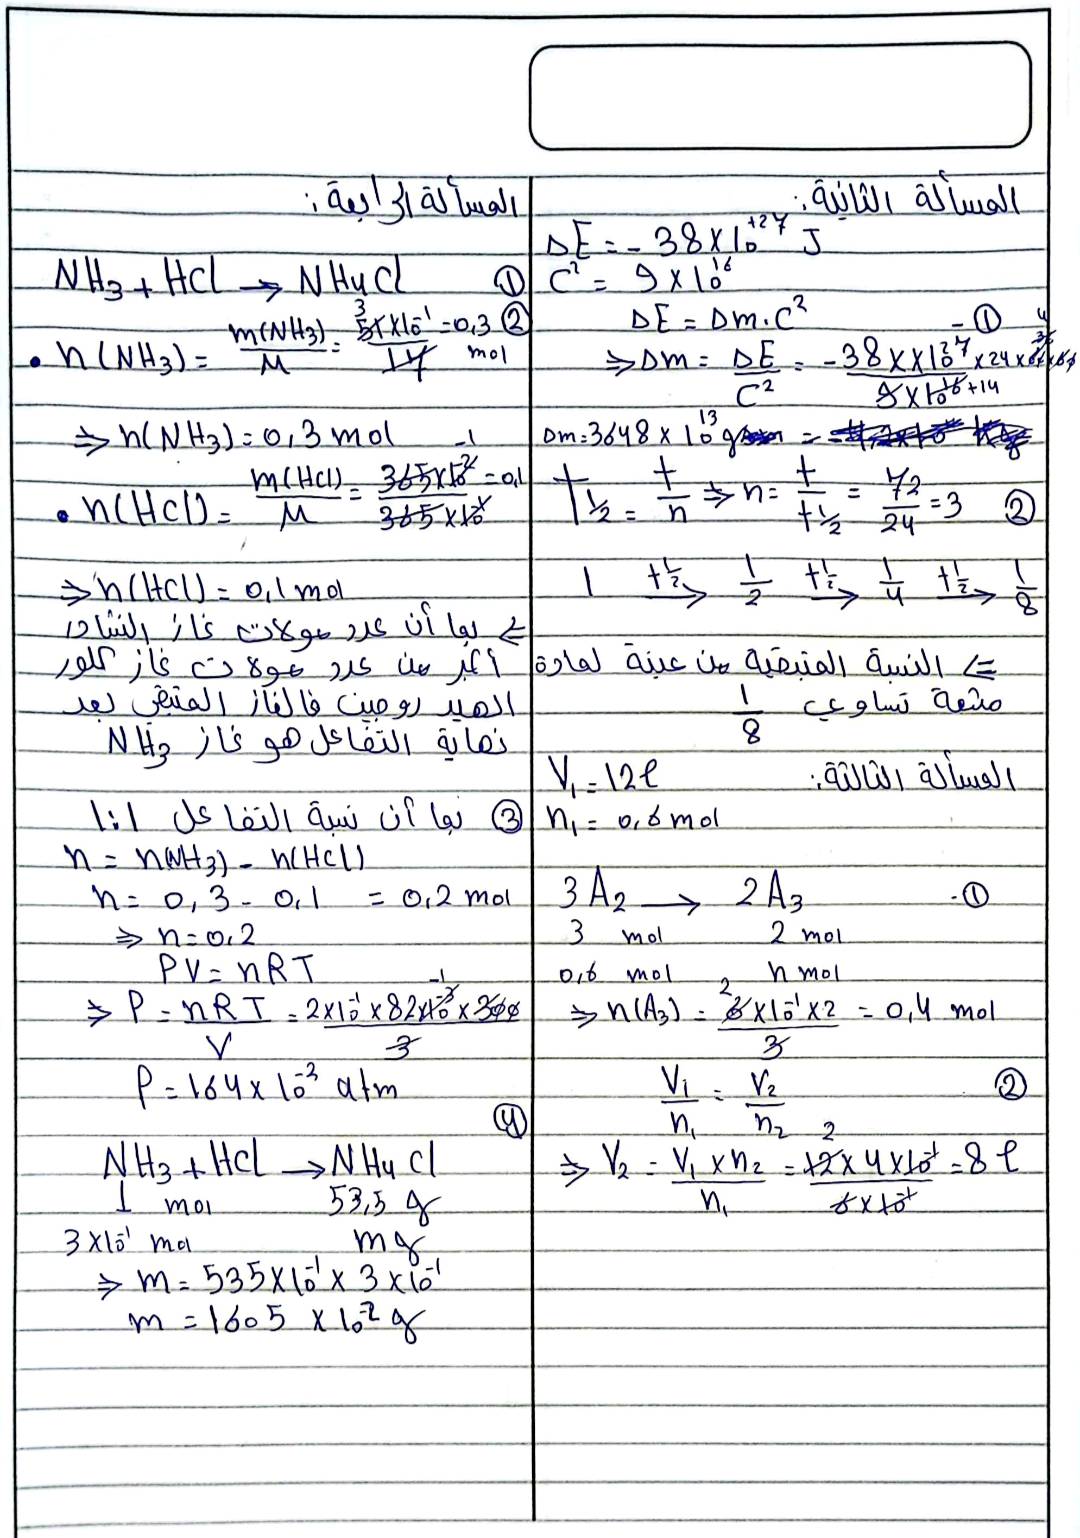 المسألة الثانية:
ΔE = - 38 × 10⁺²⁷ J
C² = 9 × 10¹⁶
ΔE = Δm . C² - ①
⇒ Δm = ΔE / C² = - 38 × × 10²⁷ × 24 × / 9 × 10¹⁶⁺¹⁴
Δm = 3648 × 10¹³ g
t½ = t / n ⇒ n = t / t½ = 72 / 24 = 3 ②
1 t½→ 1/2 t½→ 1/4 t½→ 1/8
⇐ النسبة المتبقية من عينة لمادة
مشعة تساوي 1/8
المسألة الثالثة:
V₁ = 12 ℓ
n₁ = 0,6 mol
3 A₂ → 2 A₃ - ①
3 mol 2 mol
0,6 mol n mol
⇒ n(A₃) = 6 × 10⁻¹ × 2 / 3 = 0,4 mol
V₁ / n₁ = V₂ / n₂ ②
⇒ V₂ = V₁ × n₂ / n₁ = 12 × 4 × 10⁻¹ / 6 × 10⁻¹ = 8 ℓ
المسألة الرابعة:
NH₃ + HCl → NH₄Cl ①
• n(NH₃) = m(NH₃) / M = 51 × 10⁻¹ / 17 = 0,3 mol ②
⇒ n(NH₃) = 0,3 mol
• n(HCl) = m(HCl) / M = 365 × 10⁻² / 365 × 10⁻¹ = 0,1
⇒ n(HCl) = 0,1 mol
⇐ بما أن عدد مولات غاز النشادر
أكبر من عدد مولات غاز كلور
الهيدروجين فالغاز المتبقي بعد
نهاية التفاعل هو غاز NH₃
③ بما أن نسبة التفاعل 1:1
n = n(NH₃) - n(HCl)
n = 0,3 - 0,1 = 0,2 mol
⇒ n = 0,2
PV = nRT
⇒ P = nRT / V = 2 × 10⁻¹ × 82 × 10⁻³ × 300 / 3
P = 164 × 10⁻² atm
④
NH₃ + HCl → NH₄Cl
1 mol 53,5 g
3 × 10⁻¹ mol m g
⇒ m = 535 × 10⁻¹ × 3 × 10⁻¹
m = 1605 × 10⁻² g